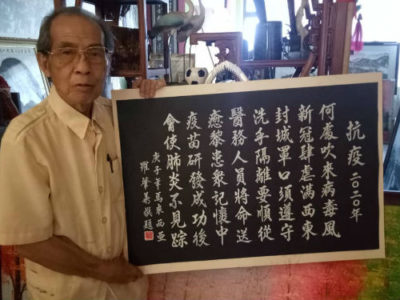 抗疫 二〇二〇年
何處吹來病毒風
新冠肆虐滿西東
封城罩口須遵守
洗手隔離要順從
醫務人員將命送
癒黎患衆記懷中
疫苗研發成功後
會使肺炎不見踪
庚子年馬來西亞
羅肇題